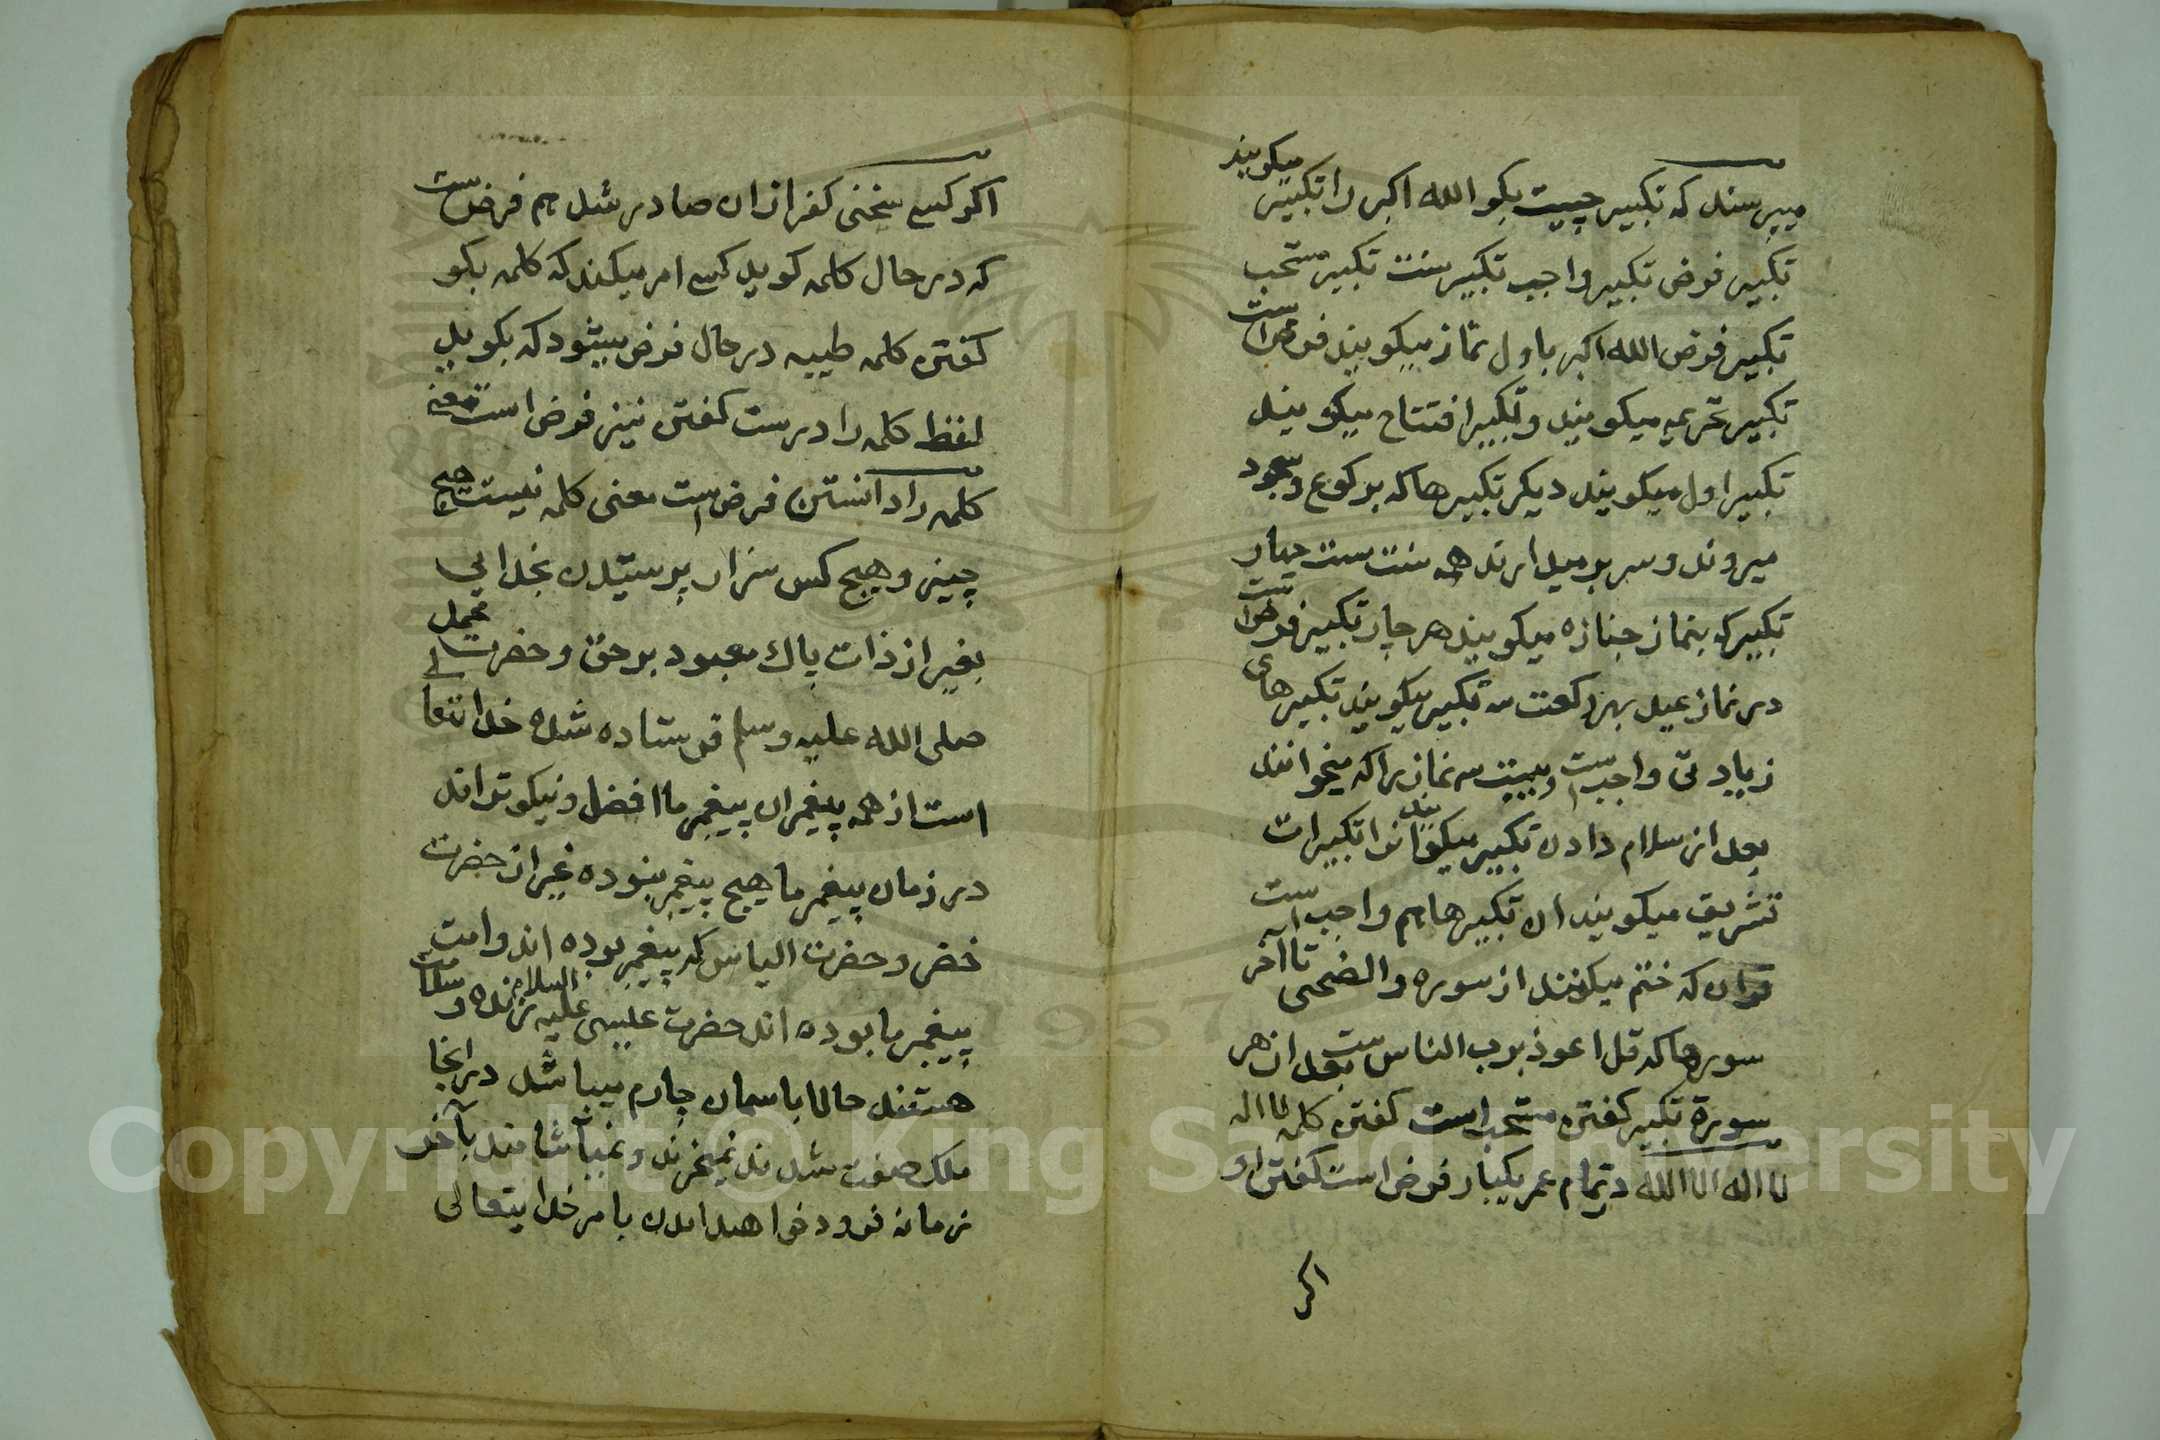 میپرسند که تکبیر چیست بکو الله اکبر را تکبیر میکویند
تکبیر فرض تکبیر واجب تکبیر سنت تکبیر مستحب
تکبیر فرض الله اکبر باول نماز میکویند فرض است
تکبیر تحریمه میکویند و تکبیر افتتاح میکویند
تکبیر اول میکویند دیکر تکبیر ها که برکوع و سجود
میروند و سر بر میدارند همه سنت ست چهار
تکبیر که بنماز جنازه میکویند هر چار تکبیر فرض است
در نماز عید بهر رکعت سه تکبیر میکویند تکبیرهای
زیادتی واجب ست و بیست سه نماز را که میخوانند
بعد از سلام دادن تکبیر میکویند انرا تکبیرات
تشریق میکویند ان تکبیر ها هم واجب است
قران که ختم میکنند از سوره والضحی تا آخر
سوره ها که قل اعوذ برب الناس ست بعد از هر
سورة تکبیر کفتن مستحب است کفتن کلمه لا اله
لا اله الا الله در تمام عمر یکبار فرض است کفتن او
اکر
اکر کسے سخنی کفر ازان صادر شد هم فرض ست
که در حال کلمه کوید کسے امر میکند که کلمه بکو
کفتن کلمه طیبه در حال فرض میشود که بکوید
لفظ کلمه را درست کفتن نیز فرض است معنے
کلمه را دانستن فرض است معنی کلمه نیست هیچ
چیزی و هیچ کس سزاار پرستیدن بخدایی
بغیر از ذات پاك معبود برحق و حضرت محمد
صلی الله علیه وسلم فرستاده شده خدا یتعالے
است از همه پیغمبران پیغمبر ما افضل و نیکوتر اند
در زمان پیغمبر ما هیچ پیغمبر نبوده غیر از حضرت
خضر و حضرت الیاس که پیغمبر بوده اند و امت
پیغمبر ما بوده اند حضرت عیسی علیه السلام زنده و سلامت
هستند حالا باسمان چارم میباشد در انجا
ملك صفت شده اند نمیخورند و نمیآشامند بآخر
زمانه فرود خواهد امدن بامر خدا یتعالی
Copyright © King Saud University
1957